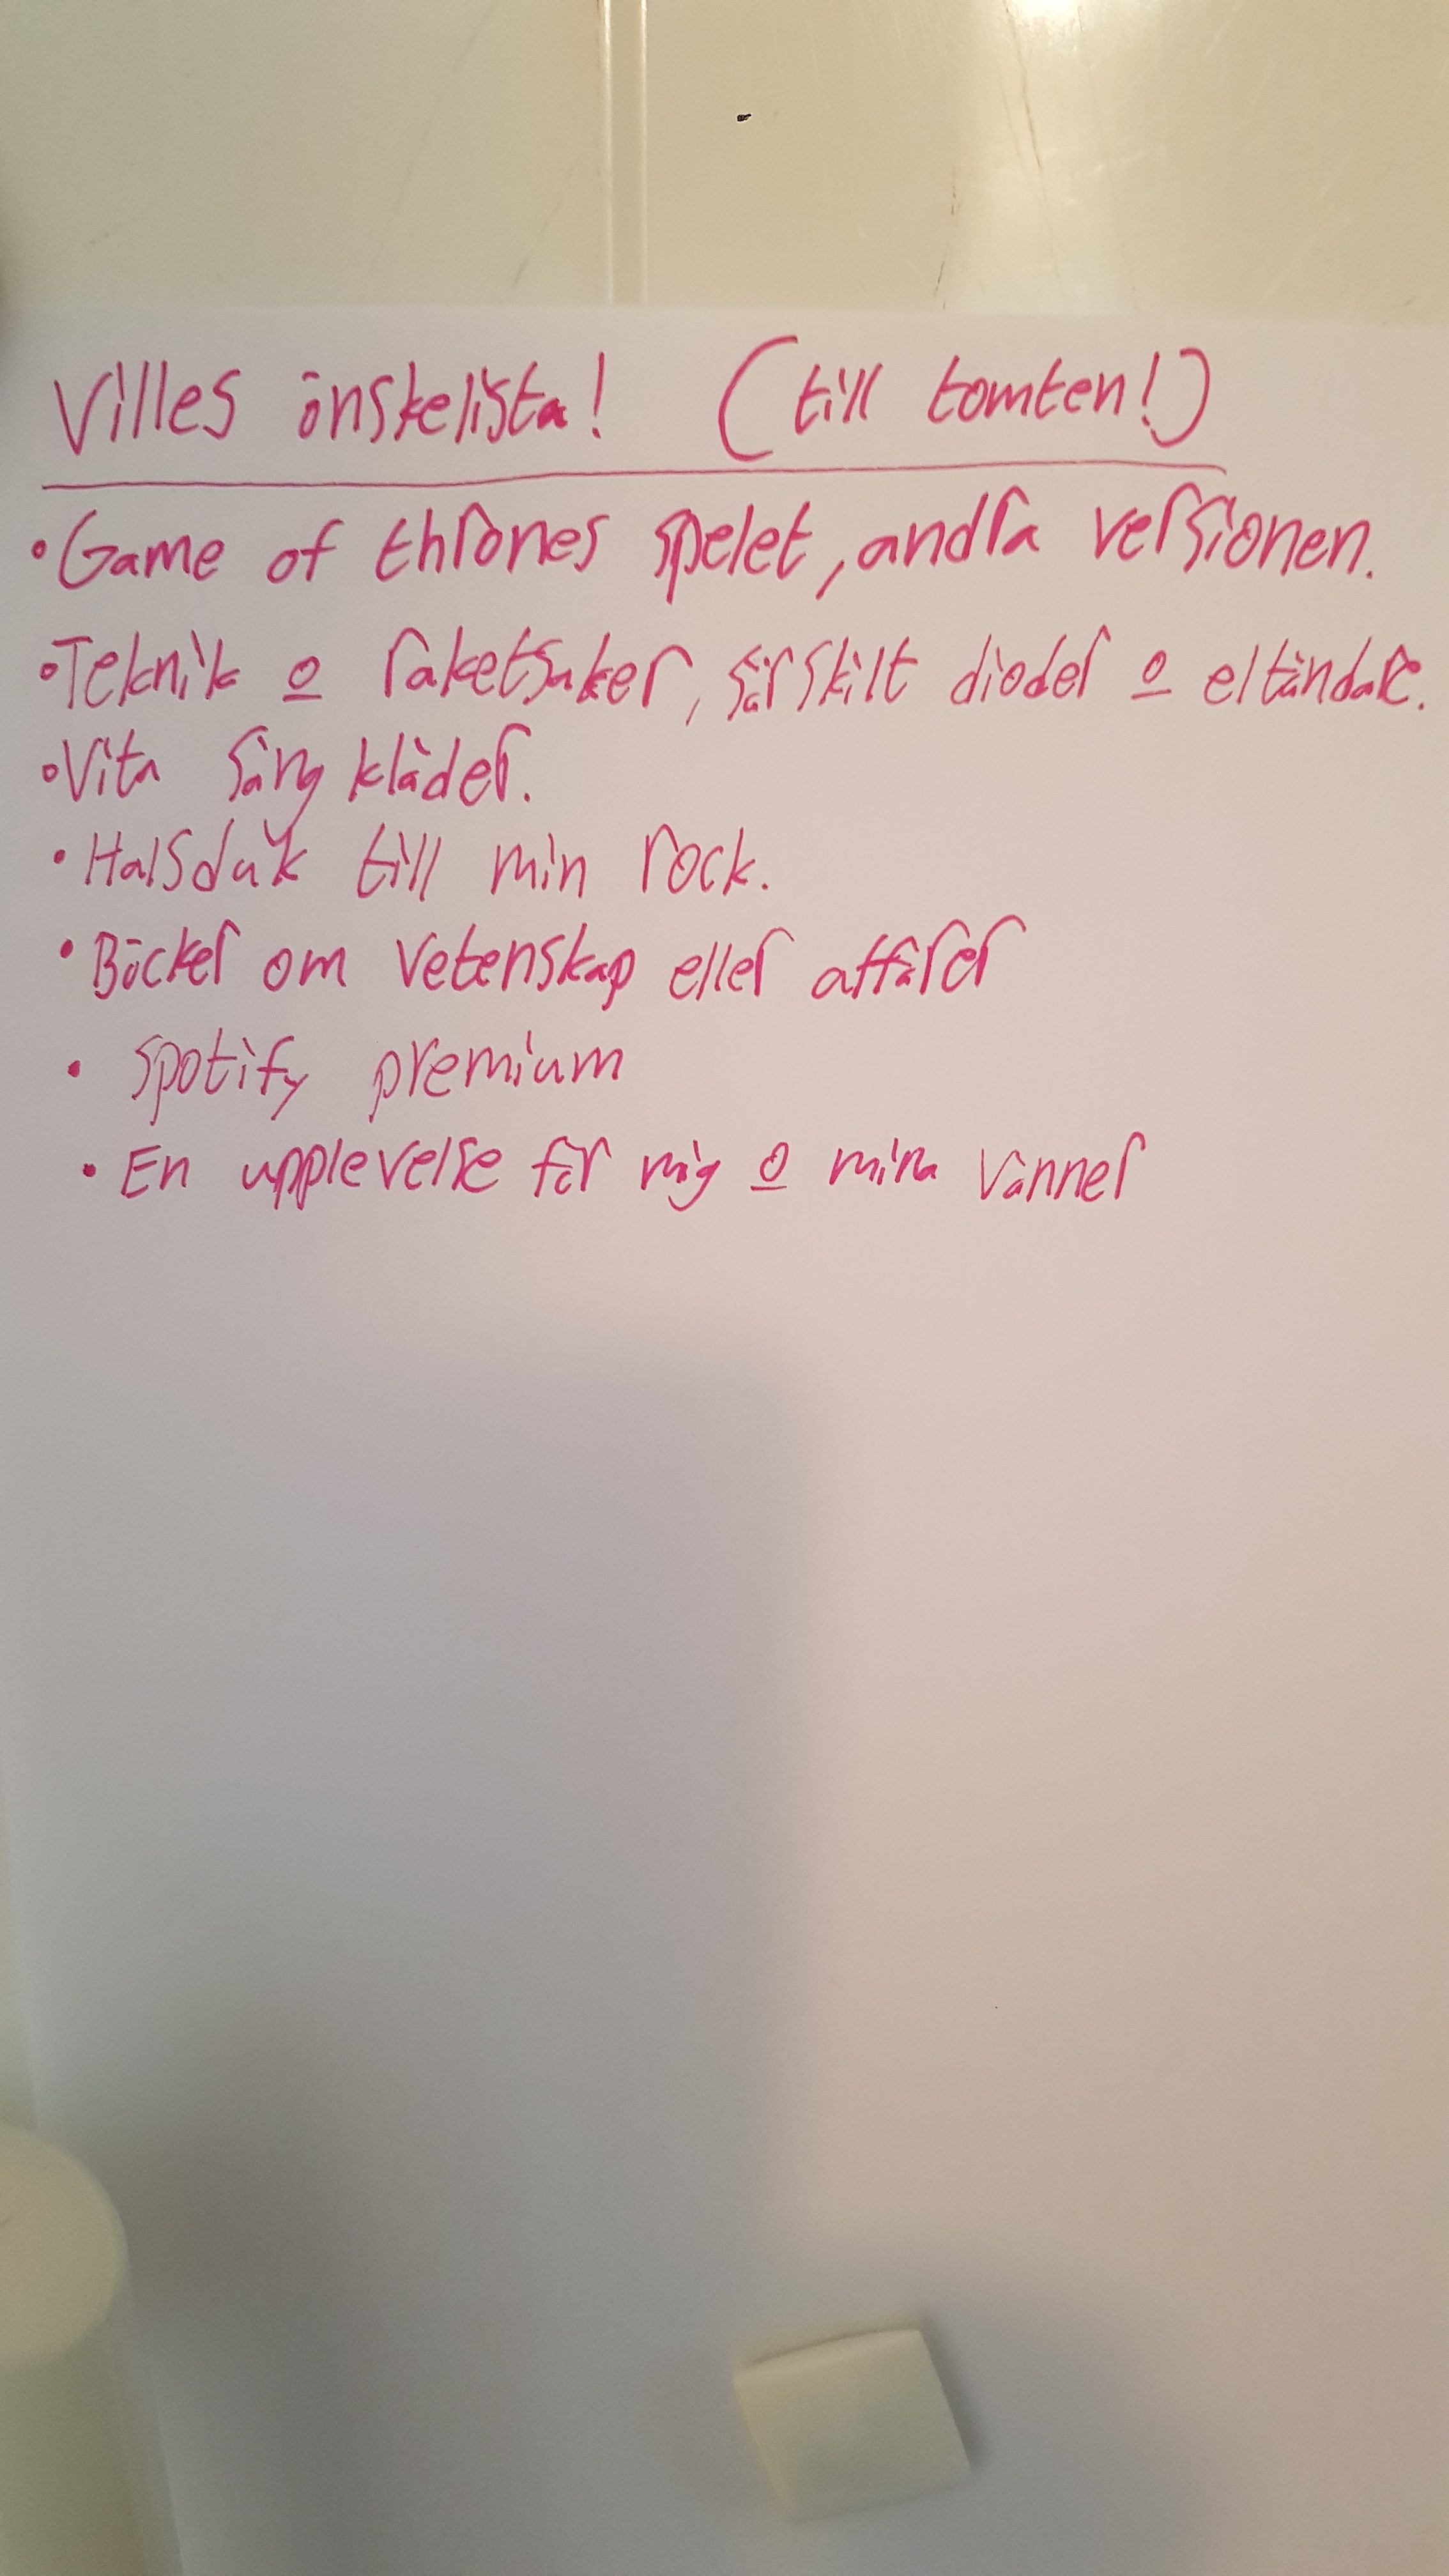 Villes önskelista! (till tomten!)
• Game of thrones spelet, andra versionen.
• Teknik o raketsaker, särskilt dioder o eltändare.
• Vita sängkläder.
• Halsduk till min rock.
• Böcker om vetenskap eller affärer
• Spotify premium
• En upplevelse för mig o mina vänner